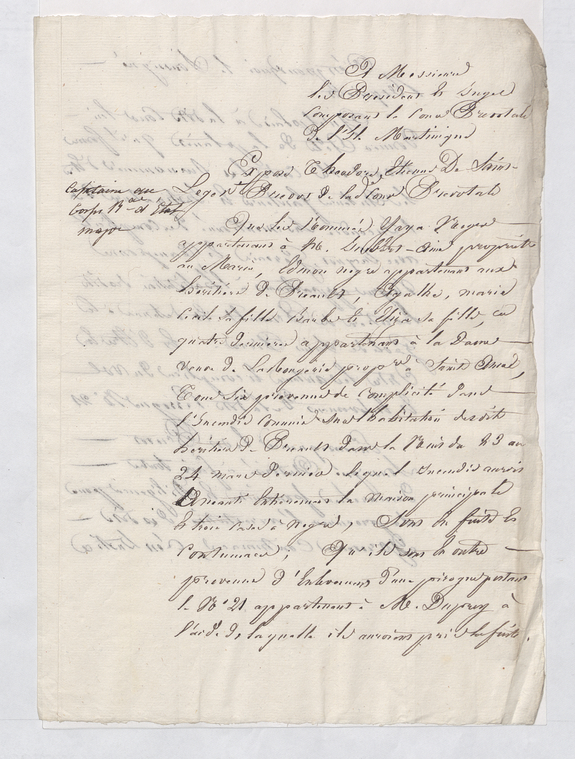 A Messieurs
Les President et Juges
Composant la Cour Prevotale
de l'Ile Martinique
Expose Theodore Etienne De Saint-
Leger Prevot de la d. Cour Prevotale
Capitaine au
Corps R.al d'Etat
major
Que les Nommés Yara Negre
appartenant à M. Guibert ainé propriét.
au Marin, Edmon negre appartenant aux
heritiers de Preault, Agathe, marie
Cecile sa fille Barbe et Eliza sa fille, ces
quatre dernieres appartenant à la Dame
veuve de Lahongrie propr.e à Sainte Anne,
Tous Six prevenus de Complicité dans
l'Incendie Commis sur l'habitation desdits
heritiers de Preault dans la Nuit du 23 au
24 mars dernier lequel Incendie auroit
Aneanti Entierement la maison principale
et trois cases à negres Sont En fuite Et
Contumace, Qu'ils sont En outre
prevenus d'Enlevement d'une pirogue portant
le N.o 21 appartenant à M. Duprey à
l'aide de laquelle ils auroient pris la fuite